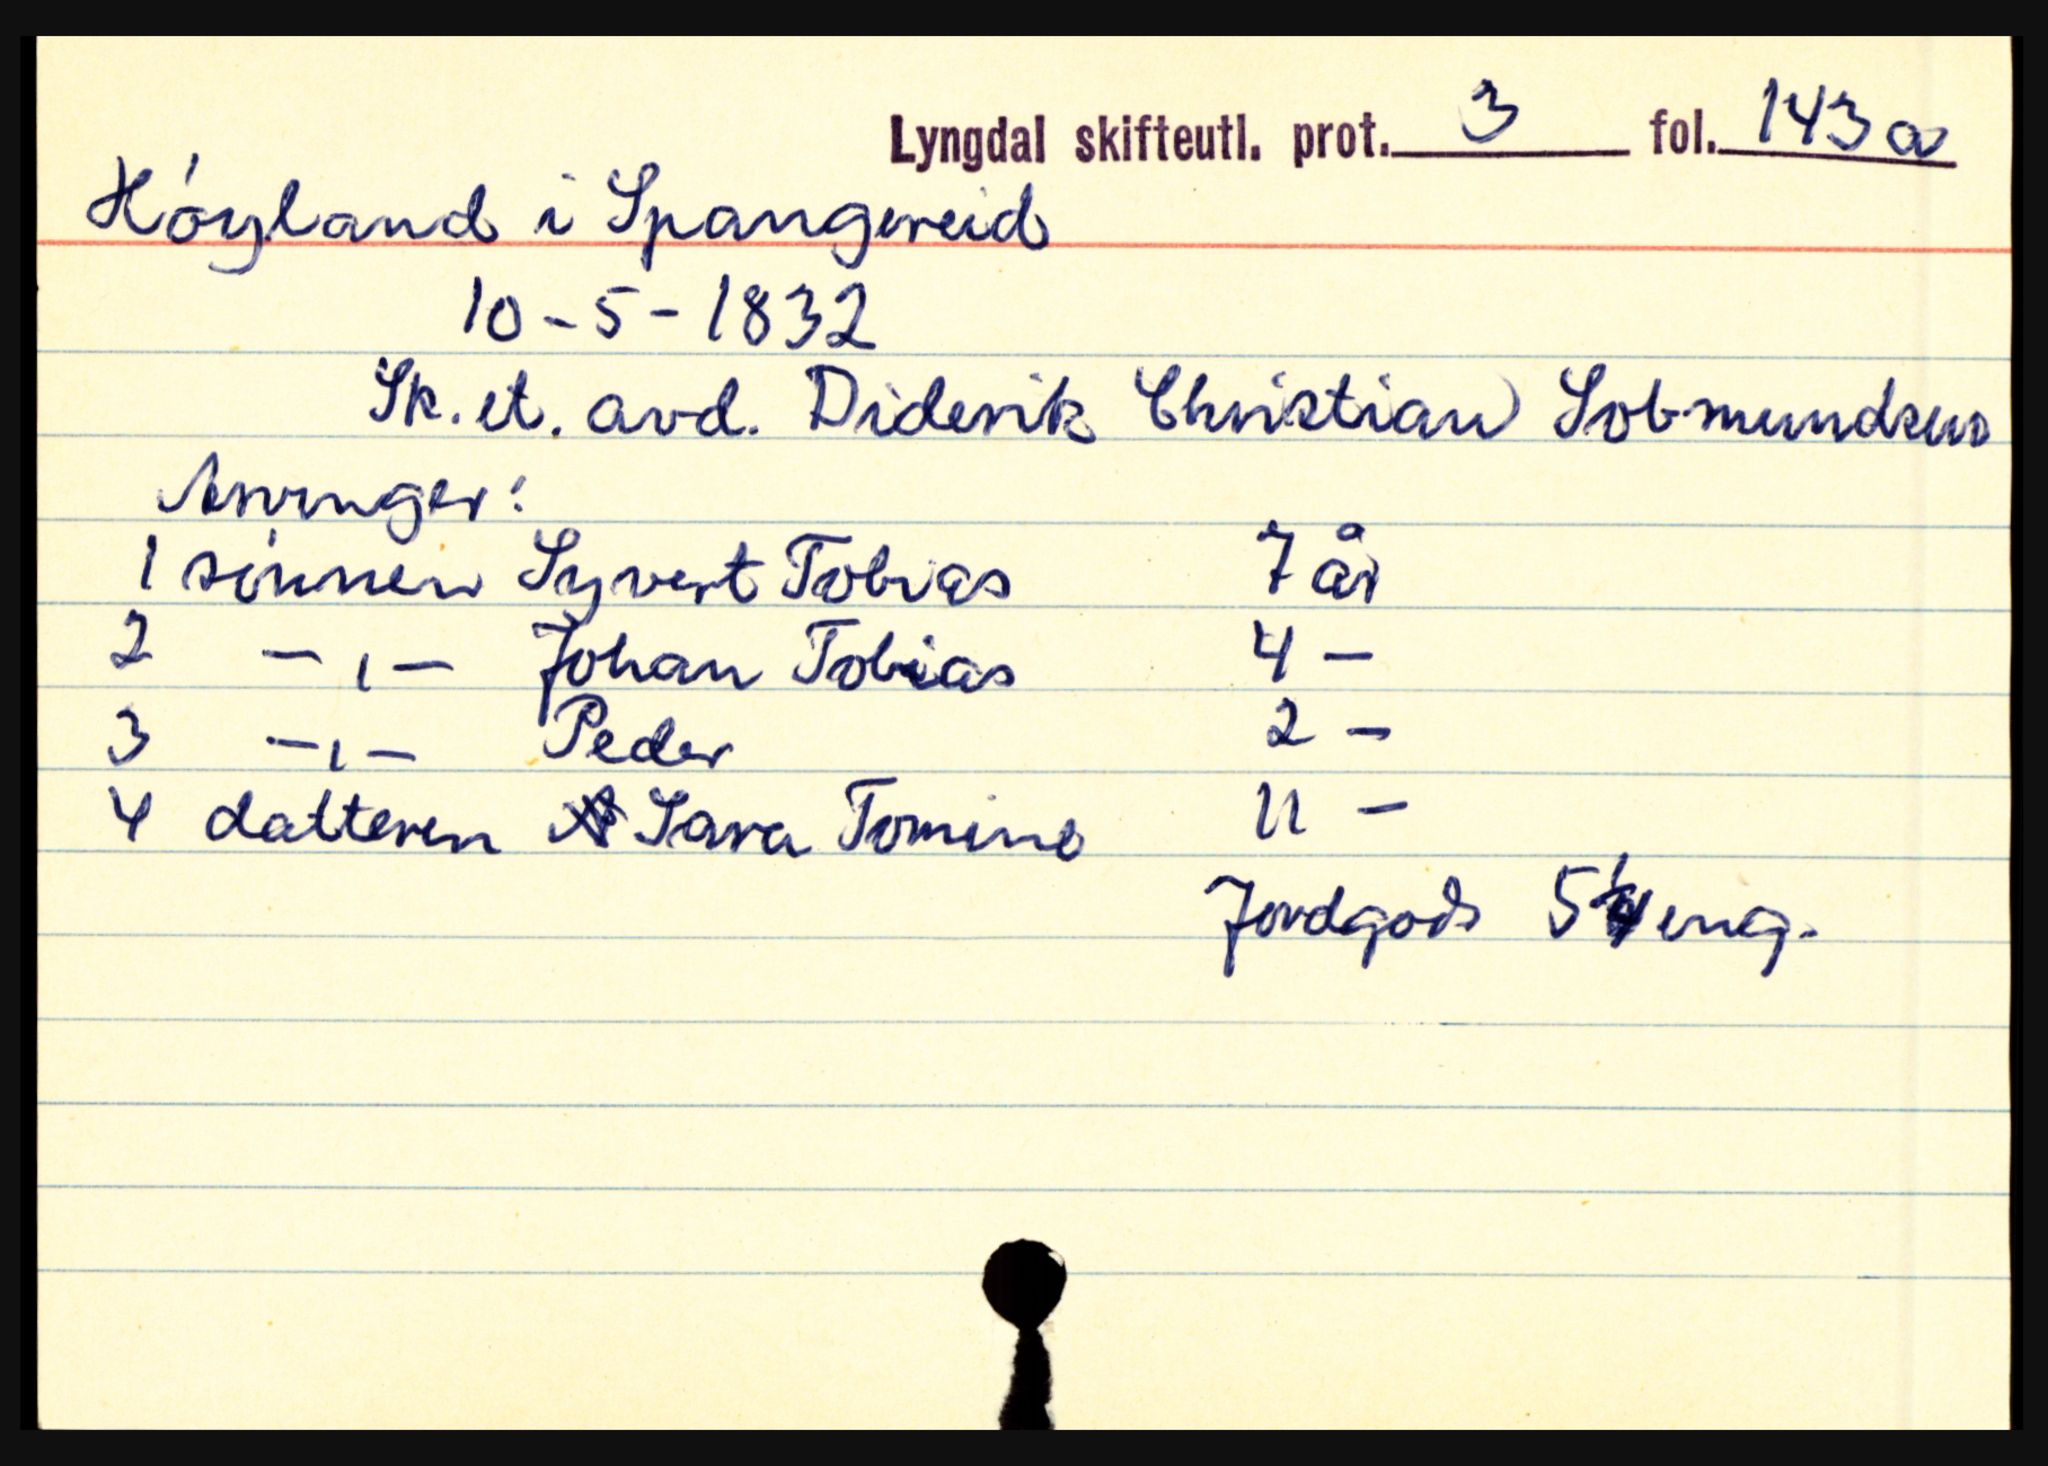 Lyngdal skifteutl. prot. 3 fol. 143a
Höyland i Spangereid
10-5-1832
Sk. et. avd. Diderik Christian Sobmundsen
Arvinger:
1 sönnen Syvert Tobias 7 år
2 -,- Johan Tobias 4 -
3 -,- Peder 2 -
4 datteren Sara Tomine 11 -
Jordgods 5 1/4 eng.